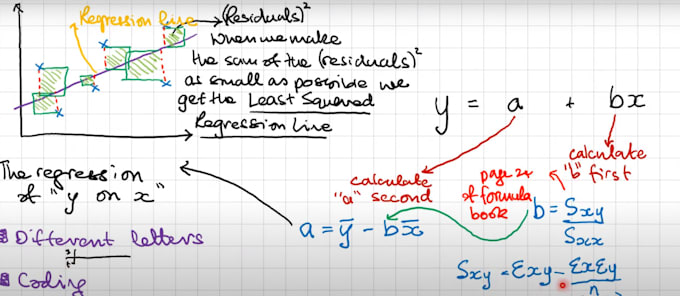 Regression line
(Residuals)²
When we make
the sum of the (residuals)²
as small as possible we
get the Least Squared
Regression Line
y = a + bx
calculate
"b" first
calculate
"a" second
page 24
of formula
book
The regression
of "y on x"
a = y̅ - bx̅
b = Sxy
Sxx
Different letters
Coding
Sxy = Σxy - ΣxΣy
n